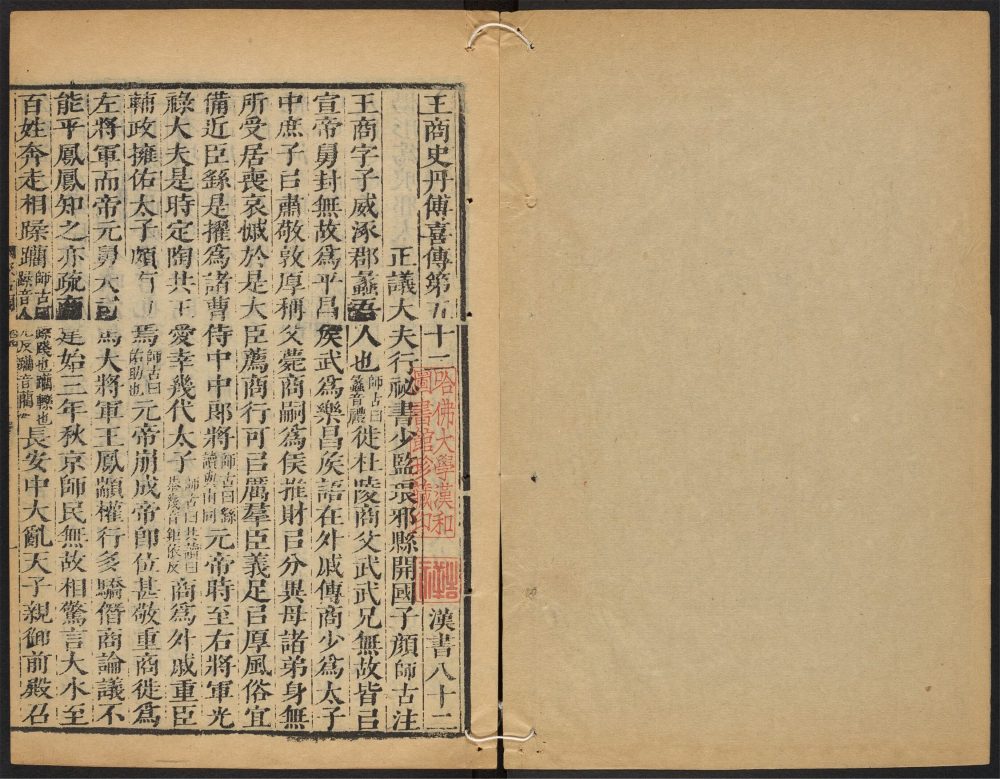 王商史丹傅喜傳第五十二 漢書八十二
正議大夫行祕書少監琅邪縣開國子顏師古注
王商字子威涿郡蠡吾人也師古曰蠡音禮徙杜陵商父武武兄無故皆㠯
宣帝舅封無故爲平昌矦武爲樂昌矦語在外戚傳商少爲太子
中庶子㠯肅敬敦厚稱父薨商嗣爲侯推財㠯分異母諸弟身無
所受居喪哀慽於是大臣薦商行可㠯厲羣臣義足㠯厚風俗宜
備近臣繇是擢爲諸曹侍中中郎將師古曰繇讀與由同元帝時至右將軍光
祿大夫是時定陶共王愛幸幾代太子師古曰共讀曰恭幾音鉅依反商爲外戚重臣
輔政擁佑太子頗有力焉師古曰佑助也元帝崩成帝卽位甚敬重商徙爲
左將軍而帝元舅大司馬大將軍王鳳顓權行多驕僭商論議不
能平鳳鳳知之亦疏商建始三年秋京師民無故相驚言大水至
百姓奔走相蹂躪師古曰蹂踐也躪轢也蹂音人九反躪音藺長安中大亂天子親御前殿召
哈佛大學漢和
圖書館珍藏印